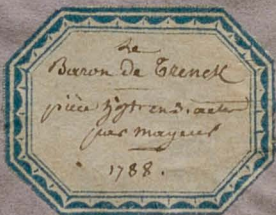 Le
Baron de Trenck
pièce hist en 3. actes
par Mayeur
1788.